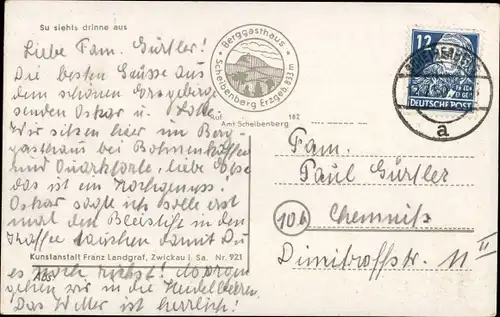 Su siehts drinne aus
Liebe Fam. Gürtler!
Die besten Grüsse aus
dem schönen Erzgebirge
senden Oskar u. Lotte.
Wir sitzen hier im Berg-
gasthaus bei Bohnenkaffee
und Quarktorte, liebe Else
das ist ein Hochgenuss.
Oskar sagte ich solle erst
mal den Bleistift in den
Kaffee tauchen damit Du
es noch riechst! Morgen
gehen wir in die Heidelbeeren.
Das Wetter ist herrlich!
Kunstanstalt Franz Landgraf, Zwickau i. Sa. Nr. 921
Abs.
Berggasthaus
Scheibenberg Erzgeb. 833 m
Ruf: 182
Amt Scheibenberg
12
DEUTSCHE POST
a
Fam.
Paul Gürtler
10b Chemnitz
Dimitroffstr. 11 II